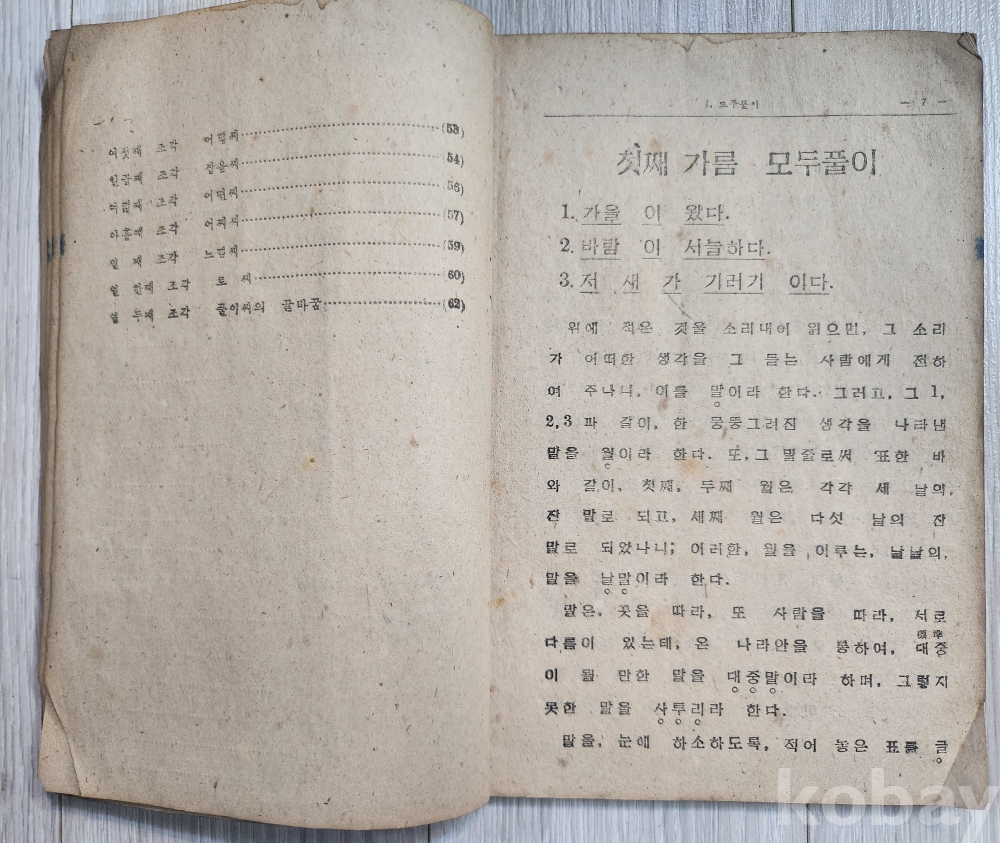 — 6 —
여섯째 조각 어떻씨 (53)
일곱째 조각 잡음씨 (54)
여덟째 조각 어떤씨 (56)
아홉째 조각 어찌씨 (57)
열 째 조각 느낌씨 (59)
열 한째 조각 토 씨 (60)
열 두째 조각 풀이씨의 꼴바꿈 (62)
1. 모두풀이 — 7 —
첫째 가름 모두풀이
1. 가을 이 왔다.
2. 바람 이 서늘하다.
3. 저 새 가 기러기 이다.
위에 적은 것을 소리내어 읽으면, 그 소리
가 어떠한 생각을 그 듣는 사람에게 전하
여 주나니, 이를 말이라 한다. 그러고, 그 1,
2, 3 과 같이, 한 뭉뚱그러진 생각을 나타낸
말을 월이라 한다. 또, 그 밑줄로써 표한 바
와 같이, 첫째, 두째 월은 각각 세 낱의,
잔 말로 되고, 세째 월은 다섯 낱의 잔
말로 되었나니; 이러한, 월을 이루는, 낱낱의,
말을 낱말이라 한다.
말은, 곳을 따라, 또 사람을 따라, 서로
다름이 있는데, 온 나라안을 통하여, 대중
標準
이 될 만한 말을 대중말이라 하며, 그렇지
못한 말을 사투리라 한다.
말을, 눈에 하소하도록, 적어 놓은 표를 글
kobay